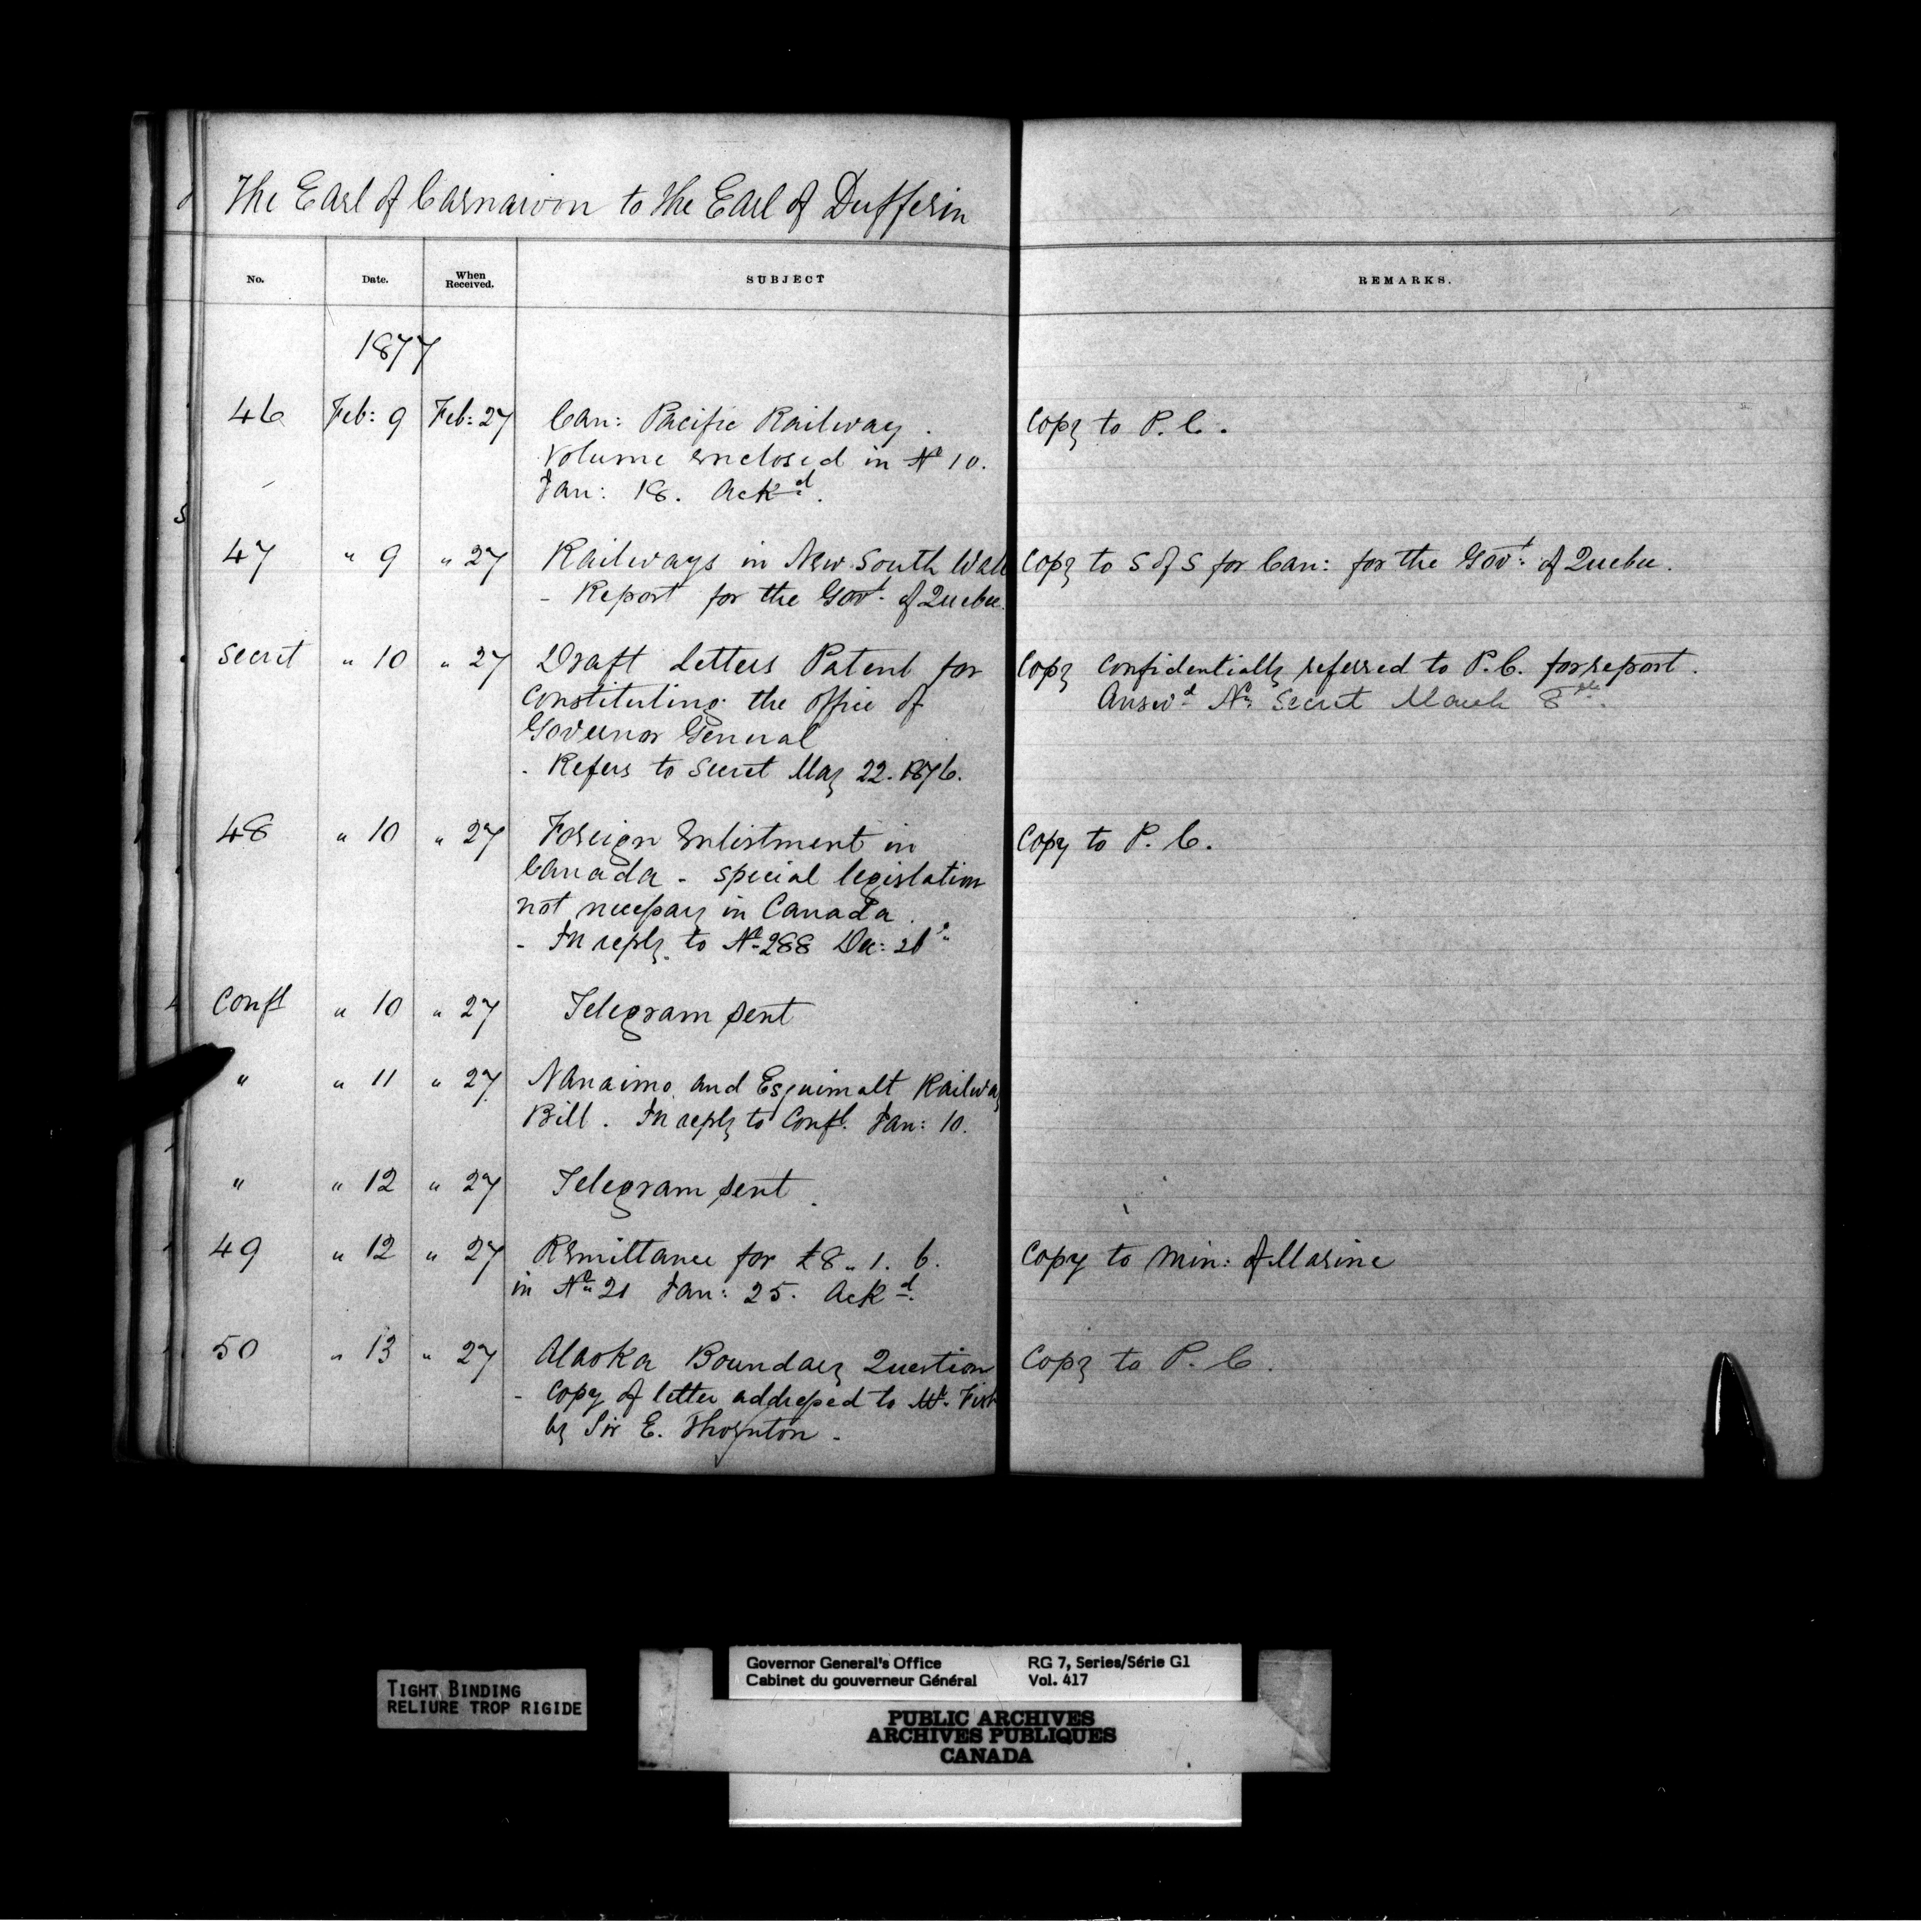 The Earl of Carnarvon to the Earl of Dufferin
No. Date. When Received. SUBJECT REMARKS.
1877
46 Feb: 9 Feb: 27 Can: Pacific Railway. Copy to P. C.
Volume enclosed in No 10.
Jan: 18. Ackd.
47 " 9 " 27 Railways in New South Wales Copy to S of S for Can: for the Govt. of Quebec.
- Report for the Govt. of Quebec.
Secret " 10 " 27 Draft Letters Patent for Copy confidentially referred to P. C. for report.
constituting the office of Answd. No. Secret March 8th.
Governor General
- Refers to Secret May 22. 1876.
48 " 10 " 27 Foreign Enlistment in Copy to P. C.
Canada - special legislation
not necessary in Canada.
- In reply to No. 288 Dec: 21
Confl " 10 " 27 Telegram sent
" " 11 " 27 Nanaimo and Esquimalt Railway
Bill. In reply to Confl. Jan: 10.
" " 12 " 27 Telegram sent.
49 " 12 " 27 Remittance for £8 " 1. 6. Copy to Min: of Marine
in No. 21 Jan: 25. Ackd.
50 " 13 " 27 Alaska Boundary Question Copy to P. C.
- Copy of letter addressed to Mr. Fish
by Sir E. Thornton.
TIGHT BINDING
RELIURE TROP RIGIDE
Governor General's Office RG 7, Series/Série G1
Cabinet du gouverneur Général Vol. 417
PUBLIC ARCHIVES
ARCHIVES PUBLIQUES
CANADA